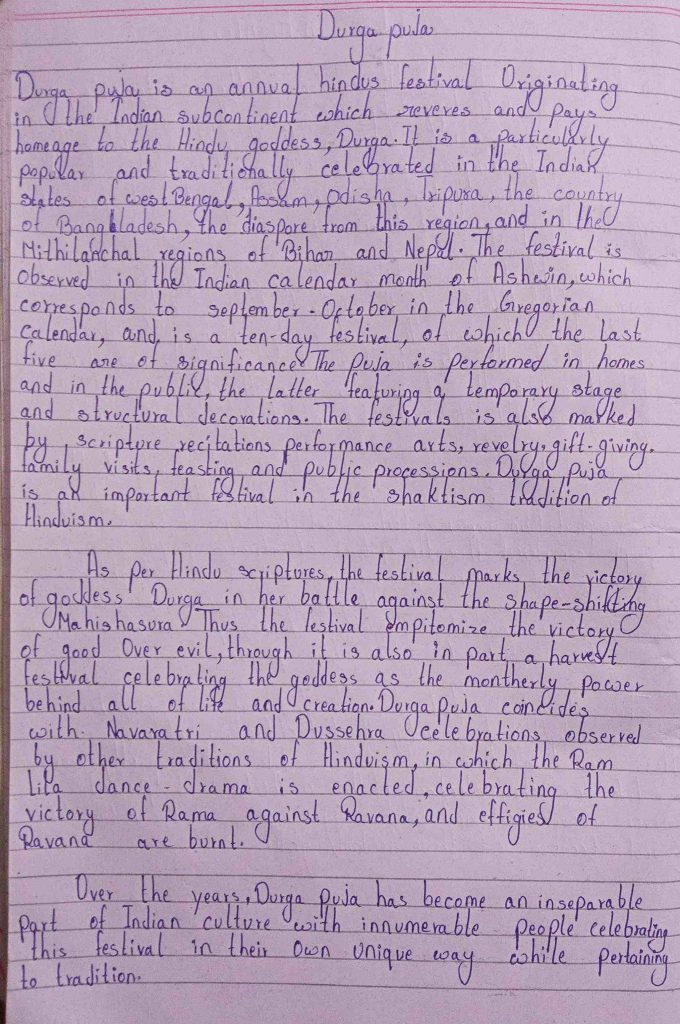 Durga puja
Durga puja is an annual hindus festival Originating
in the Indian subcontinent which reveres and pays
homeage to the Hindu goddess, Durga. It is a particularly
popular and traditionally celebrated in the Indian
states of west Bengal, Assam, Odisha, Tripura, the country
of Bangbladesh, the diaspore from this region, and in the
Mithilanchal regions of Bihar and Nepal. The festival is
observed in the Indian calendar month of Ashwin, which
corresponds to september-October in the Gregorian
calendar, and is a ten-day festival, of which the last
five are of significance The puja is performed in homes
and in the public, the latter featuring a temporary stage
and structural decorations. The festivals is also marked
by scripture recitations performance arts, revelry, gift-giving.
family visits, feasting and public processions. Durga puja
is an important festival in the shaktism tradition of
Hinduism.
As per Hindu scriptures, the festival marks the victory
of goddess Durga in her battle against the shape-shifting
Mahishasura Thus the festival empitomize the victory
of good Over evil, through it is also in part a harvest
festival celebrating the goddess as the montherly power
behind all of life and creation. Durga puja coincides
with Navaratri and Dussehra celebrations observed
by other traditions of Hinduism, in which the Ram
lila dance-drama is enacted, celebrating the
victory of Rama against Ravana, and effigies of
Ravana are burnt.
Over the years, Durga puja has become an inseparable
part of Indian culture with innumerable people celebrating
this festival in their own unique way while pertaining
to tradition.